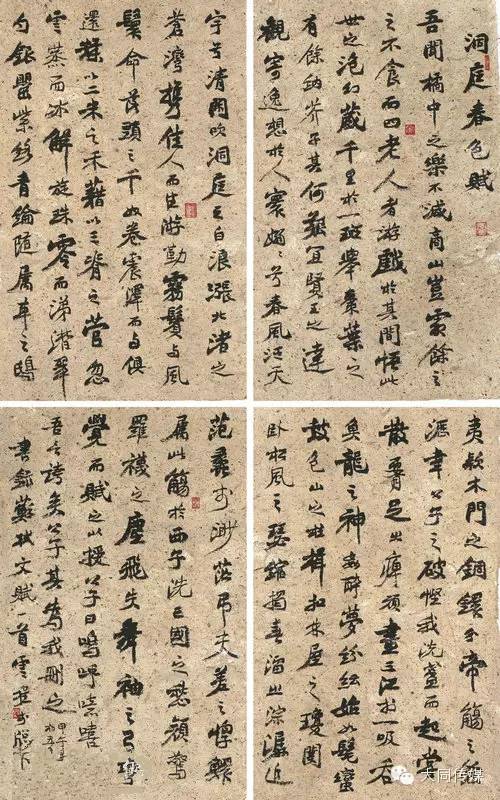 洞庭春色賦
吾聞橘中之樂不減商山豈霜餘之
之不食而四老人者游戲於其間悟此
世之泡幻藏千里於一斑舉棗葉之
有餘納芥子其何艱宜賢王之達
觀寄逸想於人寰嫋々兮春風泛天
宇兮清閑吹洞庭之白浪漲北渚之
蒼灣攜佳人而往游勒霧鬢与風
鬟命黃頭之千奴卷震澤而与俱
還糅以二米之禾藉以三脊之菅忽
雲蒸而冰解旋珠零而涕潸翠
勺銀罌紫絡青綸隨屬車之鴟
夷款木門之銅鐶分帝觴之餘
瀝幸公子之破慳我洗盞而起嘗
散腰足之痺頑盡三江於一吸吞
魚龍之神姦醉夢紛紜始如髦蠻
鼓包山之桂楫扣林屋之瓊關
臥松風之瑟縮揭春溜之淙潺追
范蠡於渺茫弔夫差之惸鰥
屬此觴於西子洗亡國之愁顏驚
羅襪之塵飛失舞袖之弓彎
覺而賦之以授公子曰嗚呼噫嘻
吾言誇矣公子其為我刪之
書錄蘇軾文賦一首
大同传媒